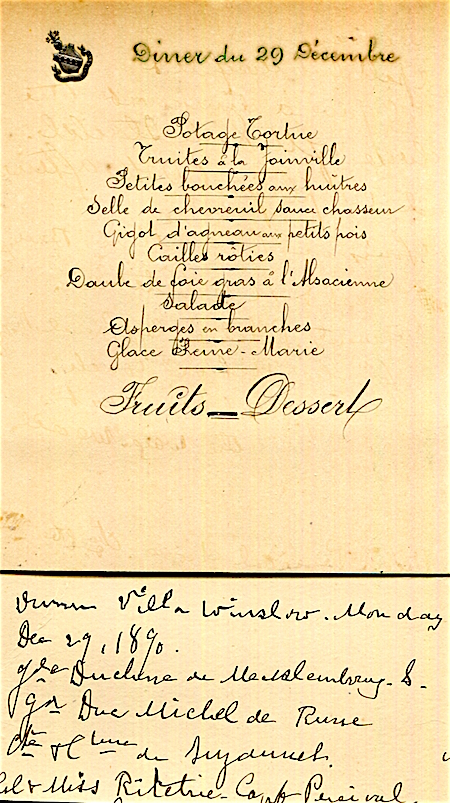 Diner du 29 Décembre
Potage Tortue
Truites à la Joinville
Petites bouchées aux huîtres
Selle de chevreuil sauce chasseur
Gigot d'agneau aux petits pois
Cailles rôties
Daube de foie gras à l'Alsacienne
Salade
Asperges en branches
Glace Reine-Marie
Fruits - Dessert
Villa Winslow. Monday
Dec 29, 1890.
Duchesse de Mecklembourg-S-
Duc Michel de Russe
de
& Miss Ritchie - Capt Percival